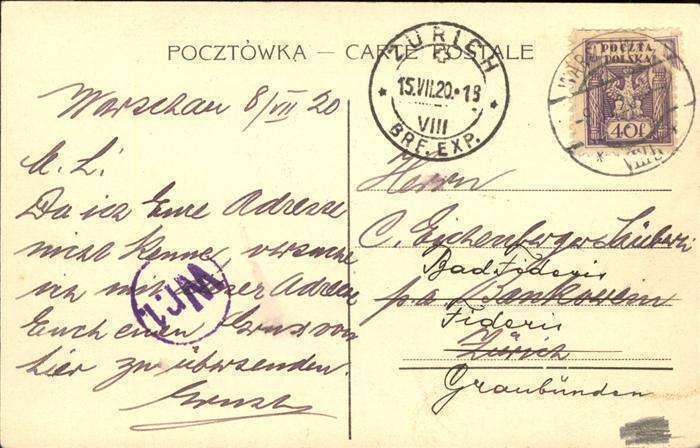 POCZTÓWKA — CARTE POSTALE
ZÜRICH
15.VII.20.-18
VIII
BRF. EXP.
POCZTA
POLSKA
40f
Warschau 8/VII 20
M. L!
Da ich Eure Adresse
nicht kenne, versuche
ich mit dieser Adresse
Euch einen Gruss von
hier zu übersenden.
Ernst
W.Cz.1
Herrn
C. Eschenberger
Bad Fideris
p.a. Bankverein
Fideris
Zürich
Graubünden